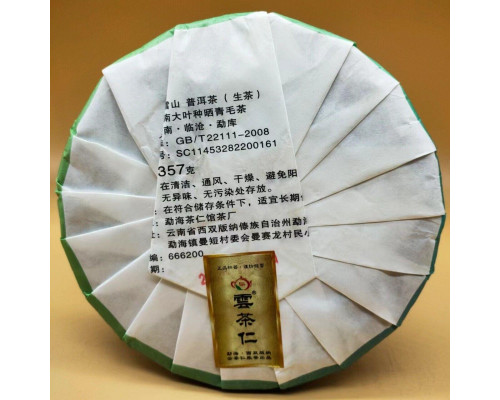 雪山 普洱茶（生茶）
南大叶种晒青毛茶
南·临沧·勐库
：GB/T22111-2008
号：SC11453282200161
357克
在清洁、通风、干燥、避免阳
无异味、无污染处存放。
：在符合储存条件下，适宜长期
：勐海茶仁馆茶厂
：云南省西双版纳傣族自治州勐海
勐海镇曼短村委会曼赛龙村民小
编：666200
期：
雲茶仁